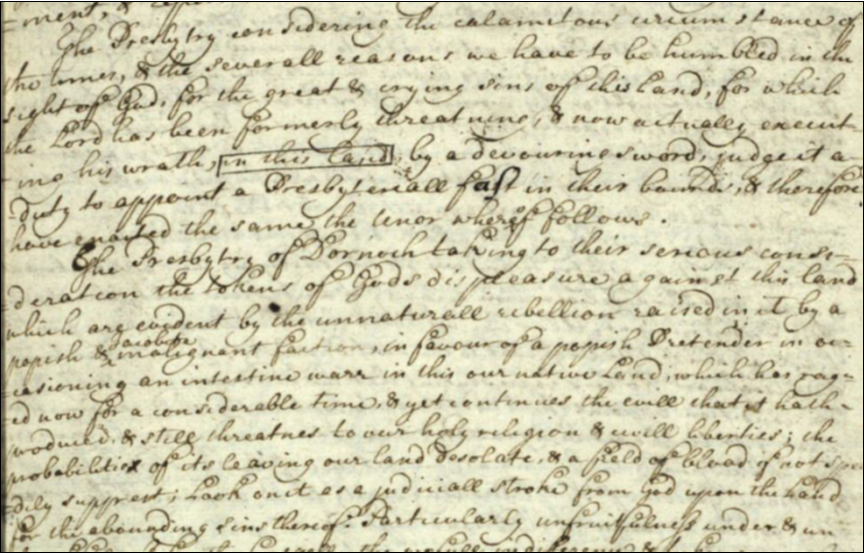 =ment, &
The Presbytry considering the calamitous circumstance of
the times, & the severall reasons we have to be humbled in the
sight of God, for the great & crying sins of this Land, for which
the Lord has been formerly threatning, & now actually execut=
=ing his wrath, in this land, by a devouring sword, judge it a
=duty to appoint a Presbyteriall fast in their bounds, & therefore
have enacted the same, the tenor wherof follows.
The Presbytry of Dornoch taking to their serious consi=
deration the tokens of Gods displeasure against this land
which are evident by the unnaturall rebellion raised in it by a
popish & jacobite malignant faction, in favour of a popish Pretender in oc=
=casioning an intestine warr in this our native Land, which has rag=
=ed now for a considerable time, & yet continues the evill that it hath
produced, & still threatnes to our holy religion & civill liberties; the
probabilities of its leaving our land desolate, & a field of blood if not spee
=dily supprest; Look on it as a judiciall stroke from God upon the Land
for the abounding sins therof. Particularly unfruitfulness under & un